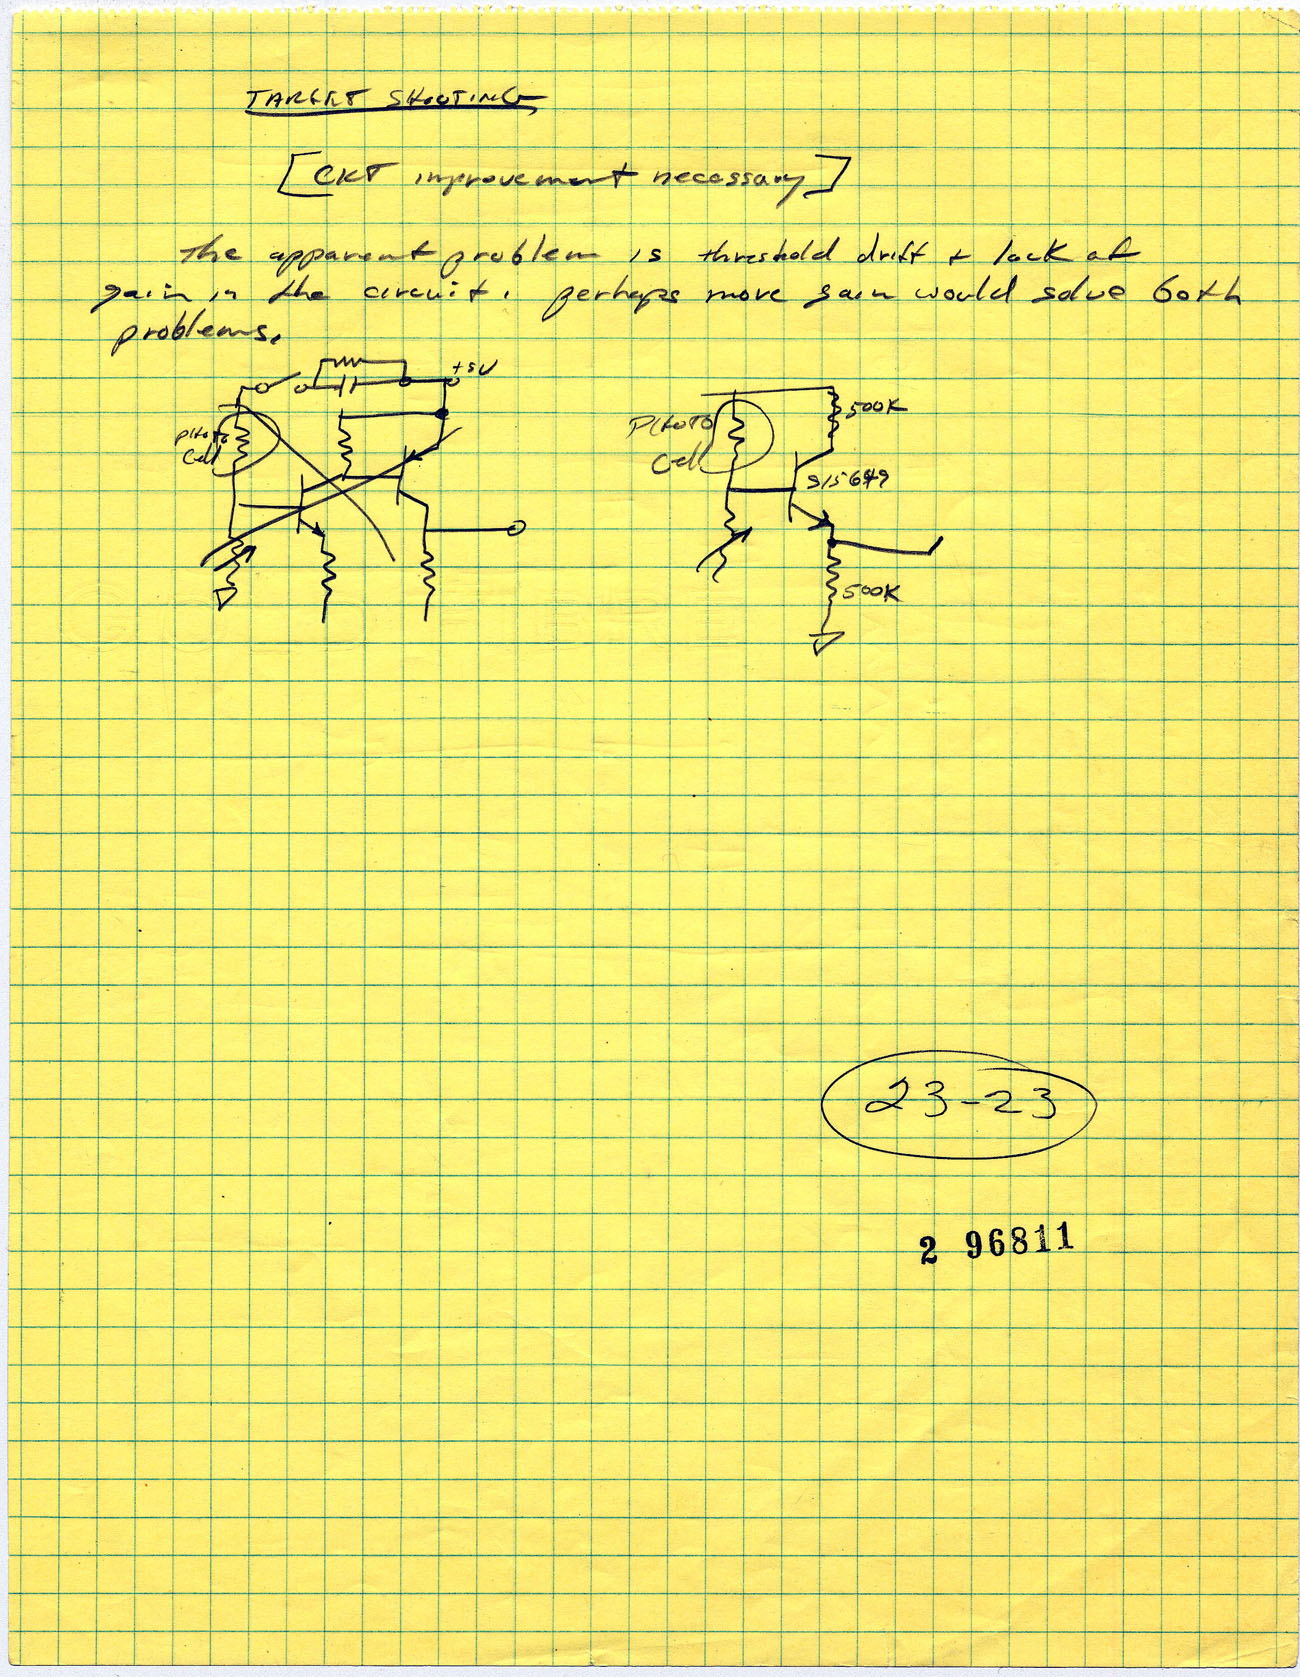 TARGET SHOOTING
[CKT improvement necessary]
The apparent problem is threshold drift + lack of
gain in the circuit. perhaps more gain would solve both
problems.
+5V
PHOTO
Cell
PHOTO
Cell
500K
500K
23-23
2 96811